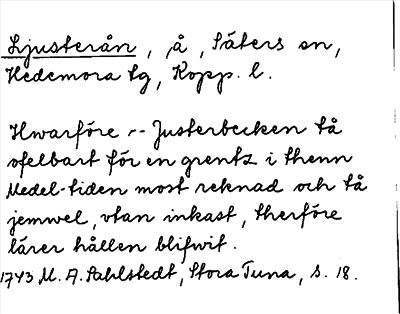 Ljusterån, å, Säters sn,
Hedemora tg, Kopp. l.
Hwarföre -- Justerbecken så
ofelbart för en grentz i thenn
Medel-tiden most reknad och så
jemwel, utan inkast, therföre
lärer hållen blifwit.
1743 M. A. Sahlstedt, Stora Tuna, s. 18.